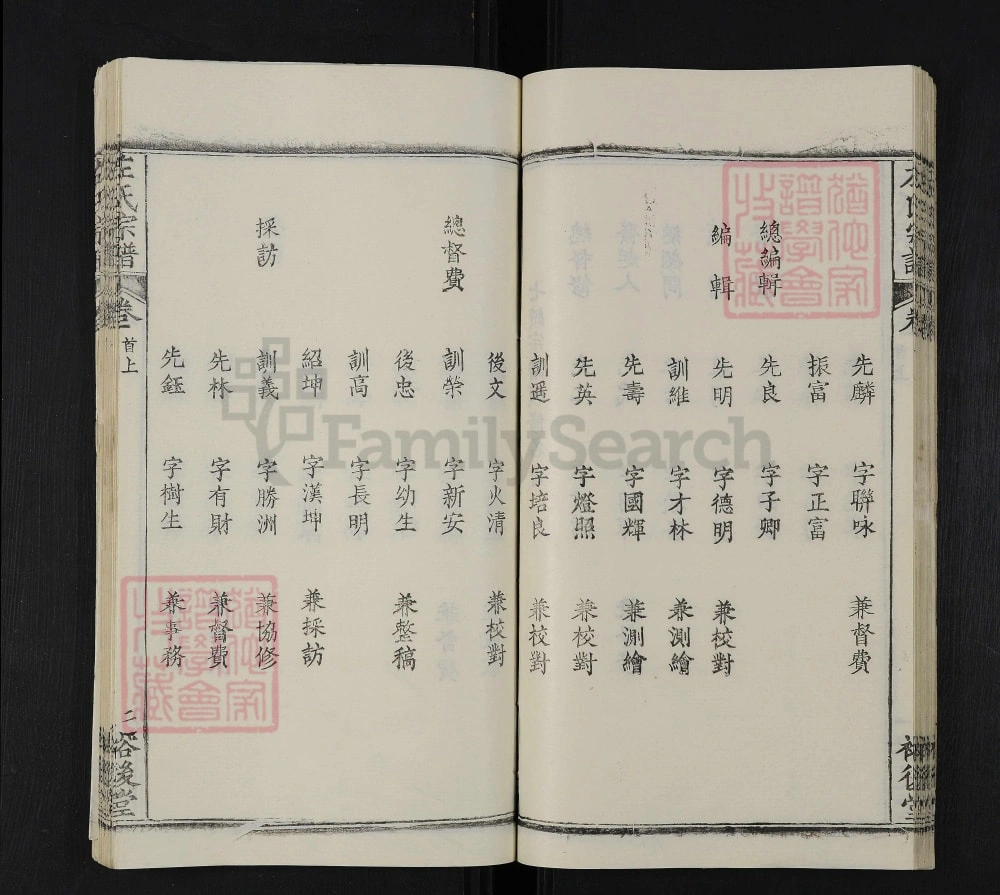 左氏宗譜
卷
先麟 字聯咏 兼督費
振富 字正富
總編輯 先良 字子卿
編輯 先明 字德明 兼校對
訓維 字才林 兼測繪
先壽 字國輝 兼測繪
先英 字燈照 兼校對
訓遥 字培良 兼校對
後文 字火清 兼校對
總督費 訓榮 字新安
後忠 字幼生 兼整稿
訓高 字長明
紹坤 字漢坤 兼採訪
採訪 訓義 字勝洲 兼協修
先林 字有財 兼督費
先鈺 字樹生 兼事務
左氏宗譜 卷 首上 二 裕後堂
FamilySearch